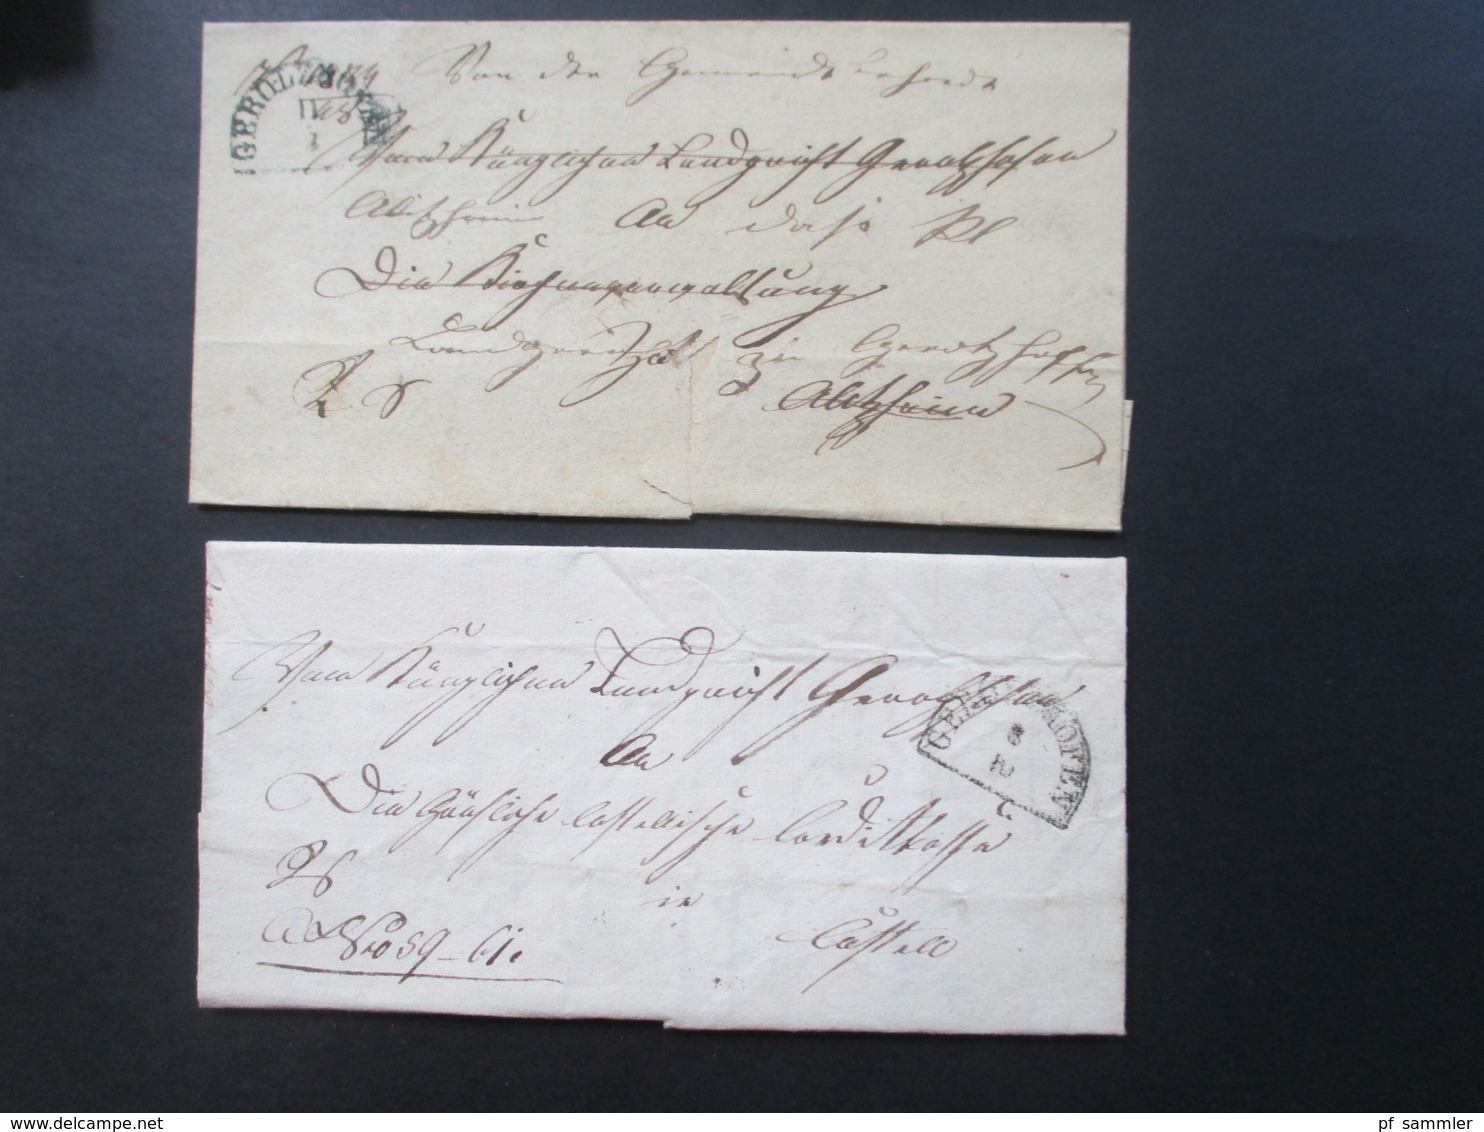 GEROLZHOFEN
Von der Gemeinde
Vom Königlichen Landgericht Gerolzhofen
Alitzheim An das K
Die Kirchenverwaltung
Landgericht zu Gerolzhofen
Alitzheim
Vom Königlichen Landgericht Gerolzhofen
GEROLZHOFEN
8
An
Die Gräfliche Castellische Creditkasse
in
Castell
www.delcampe.net
pf_sammler